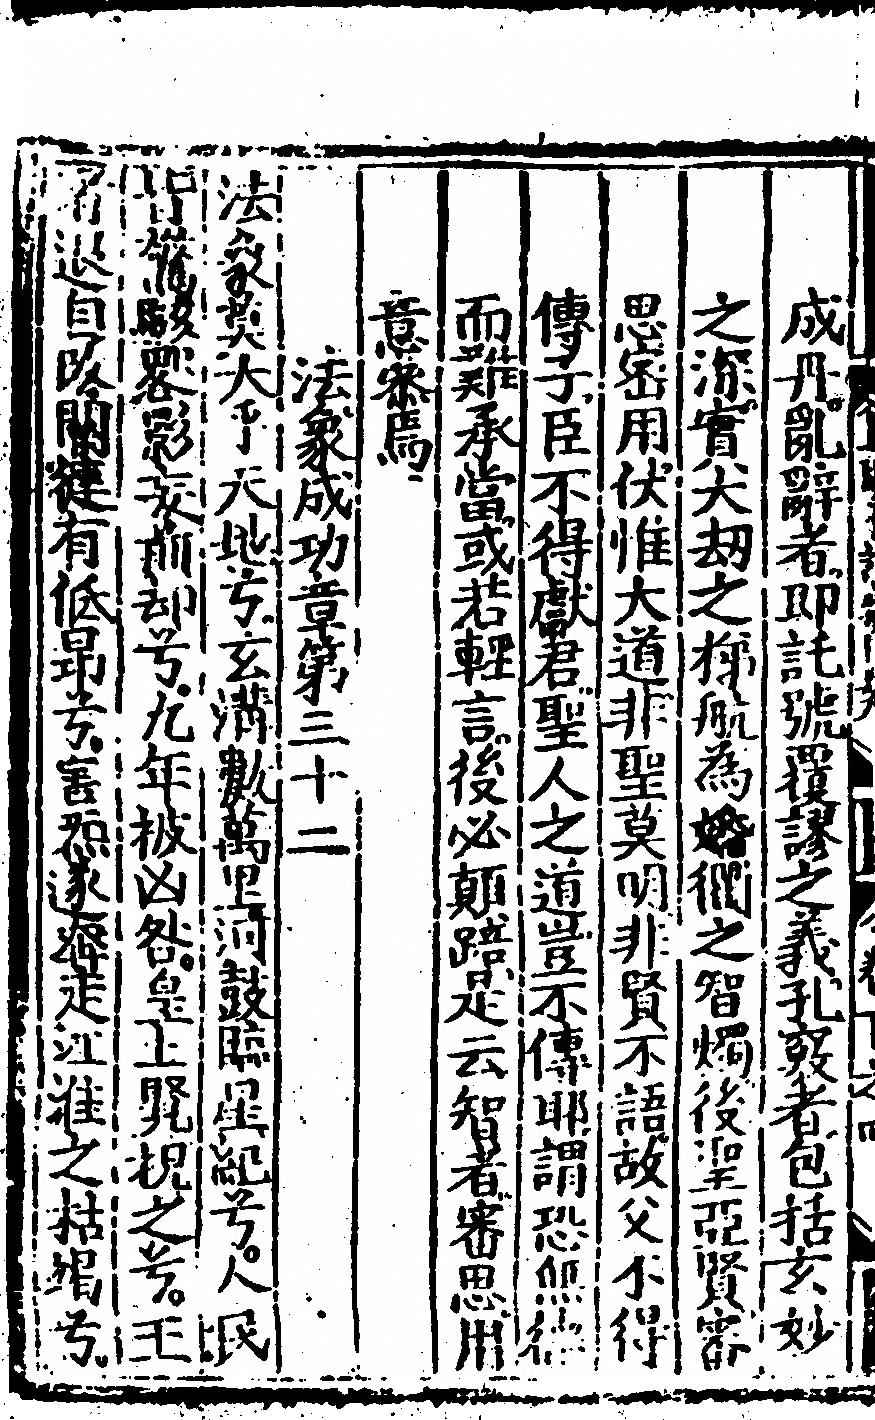 成丹亂辭者即託號覆謬之義孔竅者包括玄妙
之深實大劫之梯航為迷徒之智燭後聖亞賢審
思密用伏惟大道非聖莫明非賢不語故父不得
傳子臣不得獻君聖人之道豈不傳耶謂恐無德
而難承當或若輕言後必顛踣是云智者審思用
意察焉
法象成功章第三十二
法象莫大乎天地兮玄溝數萬里河鼓臨星紀兮人民
皆驚駭晷影妄前却兮九年被凶咎皇上覽視之兮王
者退自改關鍵有低昂兮害炁遂奔走江淮之枯竭兮